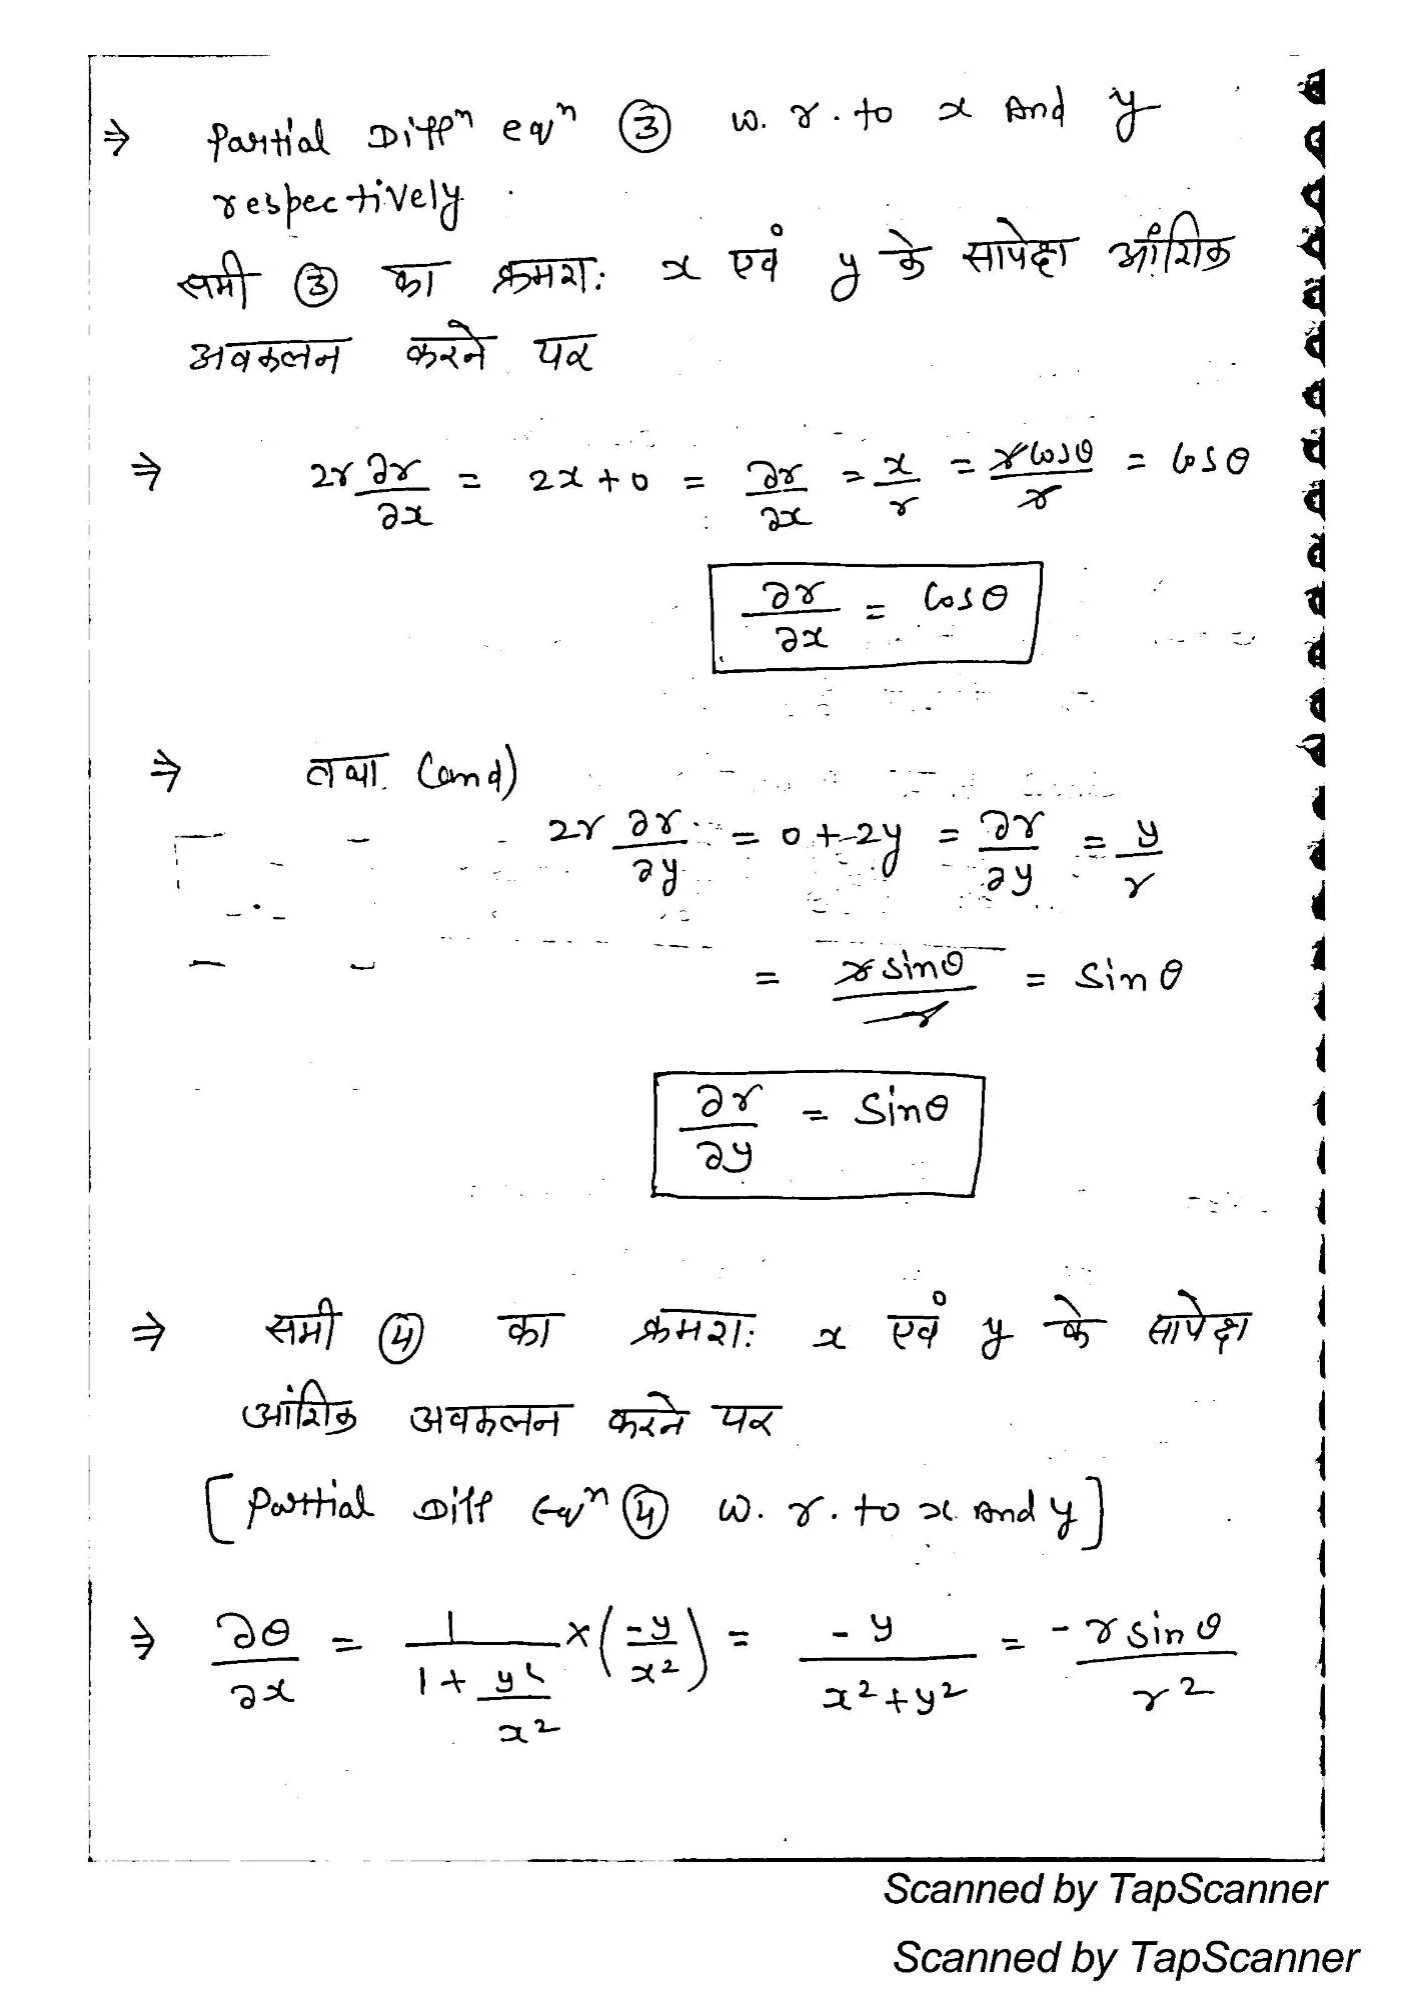 ⇒ Partial Diffⁿ eqⁿ ③ w. r. to x And y
respectively.
समी ③ का क्रमशः x एवं y के सापेक्ष आंशिक
अवकलन करने पर
⇒ 2r ∂r/∂x = 2x + 0 = ∂r/∂x = x/r = r cosθ/r = cosθ
∂r/∂x = cosθ
⇒ तथा (and)
2r ∂r/∂y = 0 + 2y = ∂r/∂y = y/r
= r sinθ/r = sinθ
∂r/∂y = sinθ
⇒ समी ④ का क्रमशः x एवं y के सापेक्ष
आंशिक अवकलन करने पर
[Partial Diff Eqⁿ ④ w. r. to x And y]
⇒ ∂θ/∂x = 1/(1 + y²/x²) × (-y/x²) = -y/(x² + y²) = -r sinθ/r²
Scanned by TapScanner
Scanned by TapScanner